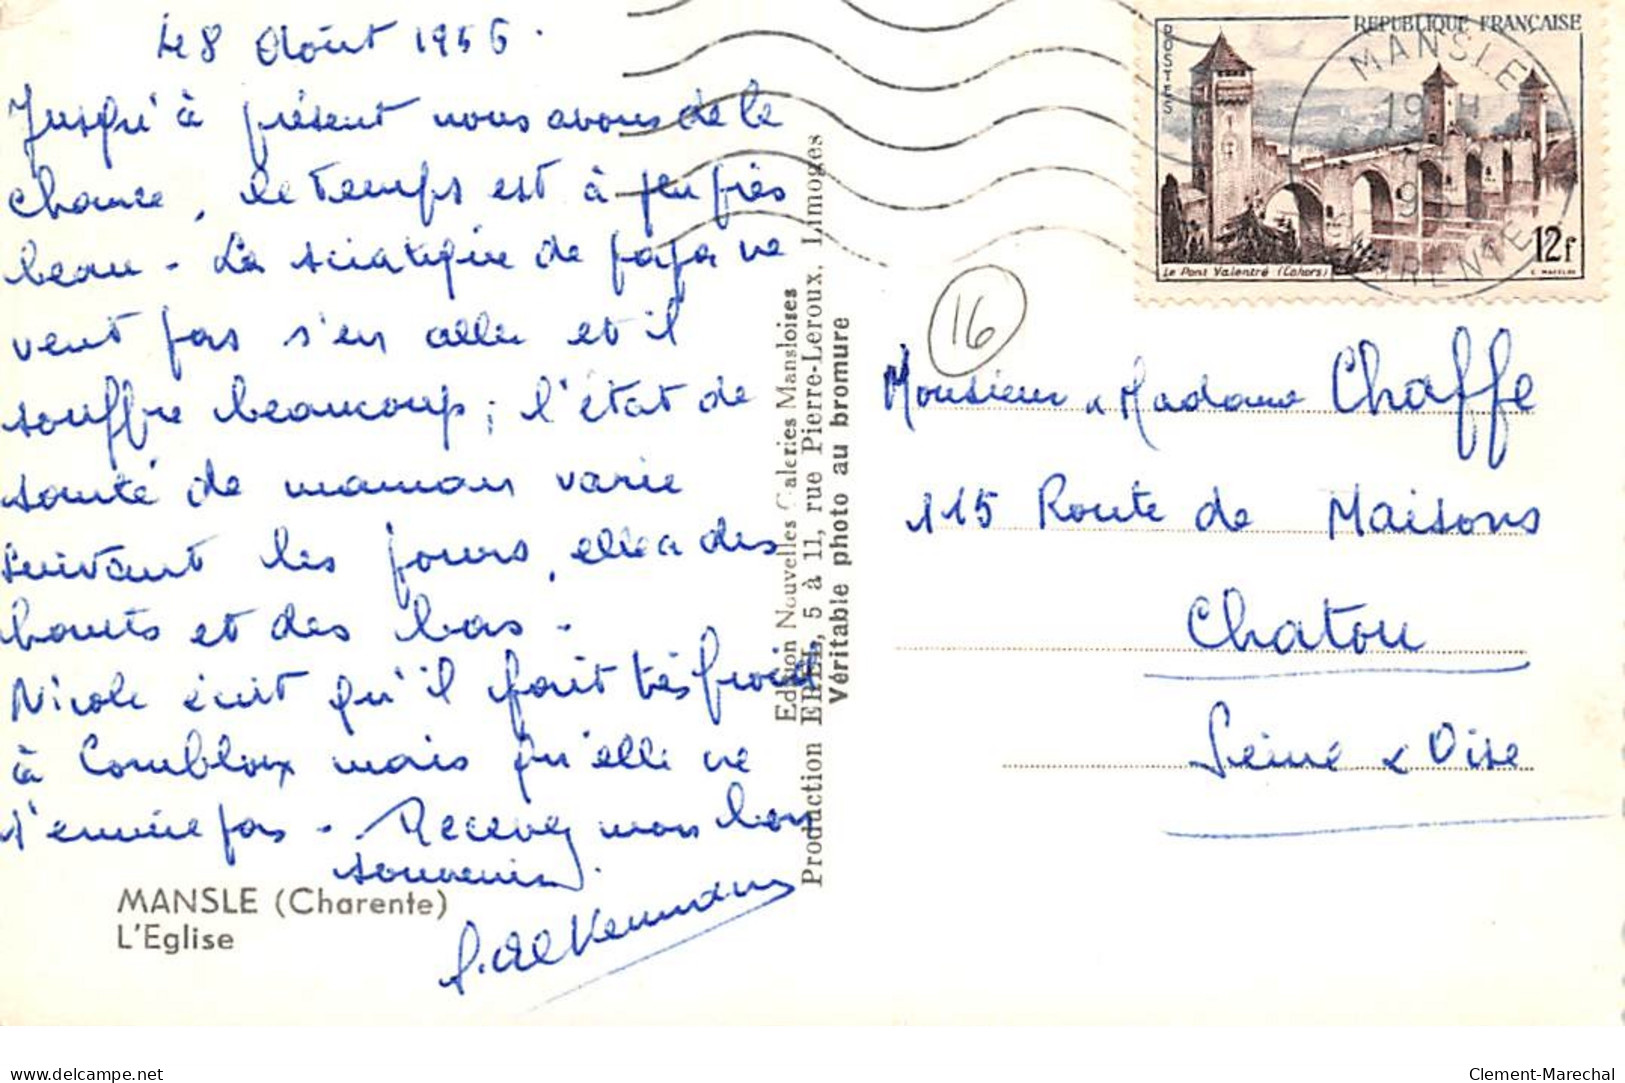 Le 8 Août 1956.
Jusqu'à présent nous avons de la
chance, le temps est à peu près
beau - La sciatique de papa ne
veut pas s'en aller et il
souffre beaucoup ; l'état de
santé de maman varie
suivant les jours, elle a des
hauts et des bas -
Nicole écrit qu'il fait très froid
à Combloux mais qu'elle ne
s'ennuie pas - Recevez mon bon
souvenir.
MANSLE (Charente)
L'Eglise
Edition Nouvelles Galeries Mansloises
Production EREL, 5 à 11, rue Pierre-Leroux, Limoges
Véritable photo au bromure
REPUBLIQUE FRANÇAISE
POSTES
Le Pont Valentré (Cahors)
12f
MANSLE
19 H
CHARENTE
16
Monsieur & Madame Chaffe
115 Route de Maisons
Chatou
Seine & Oise
Clement-Marechal
www.delcampe.net